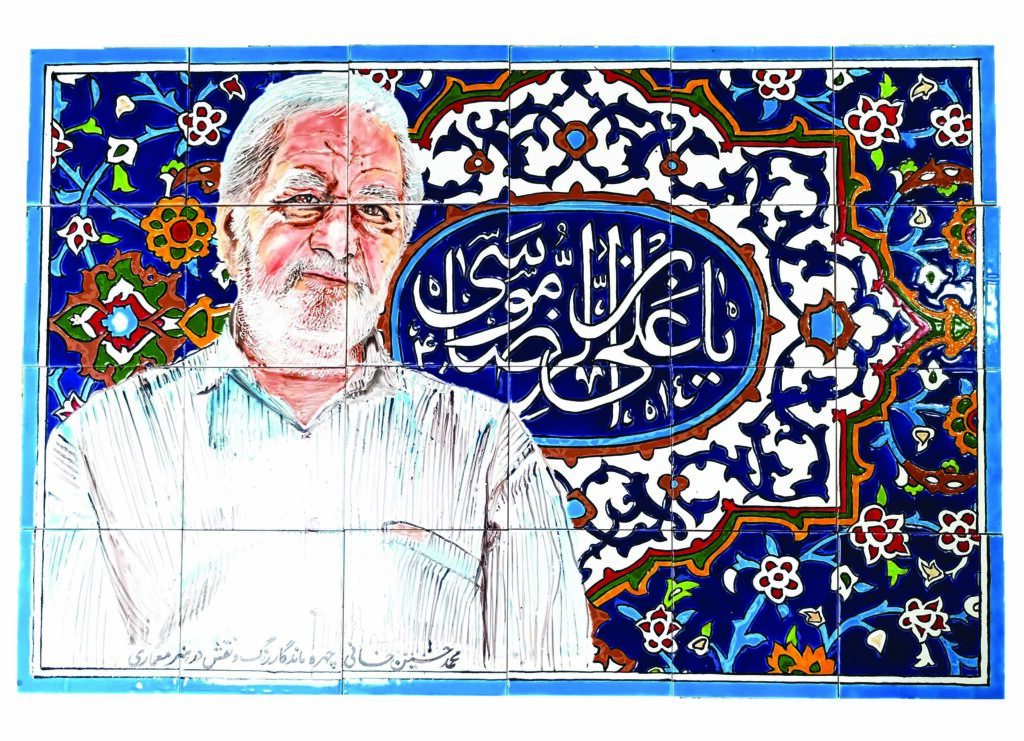 یا علی بن موسی الرضا
محمد حسین خانی چهره ماندگار رنگ و نقش در هنر معماری